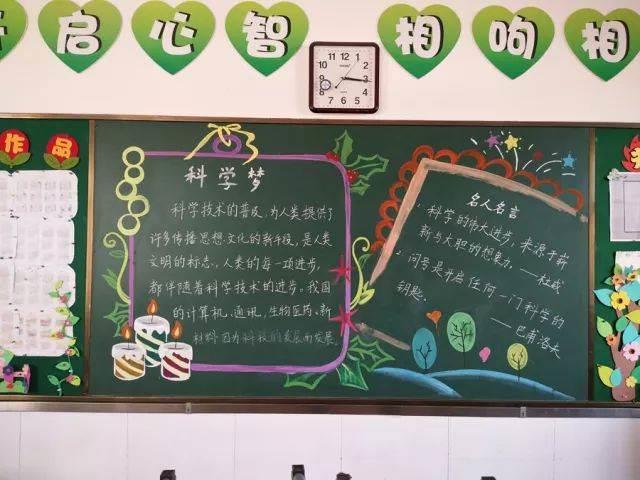 启心智
相响相
作品
科学梦
科学技术的普及，为人类提供了
许多传播思想文化的新手段，是人类
文明的标志，人类的每一项进步，
都伴随着科学技术的进步。我国
的计算机、通讯、生物医药、新
材料因为科技的发展而发展
名人名言
1. 科学的伟大进步，来源于崭
新与大胆的想象力。——杜威
2. 问号是开启任何一门科学的
钥匙。
——巴甫洛夫